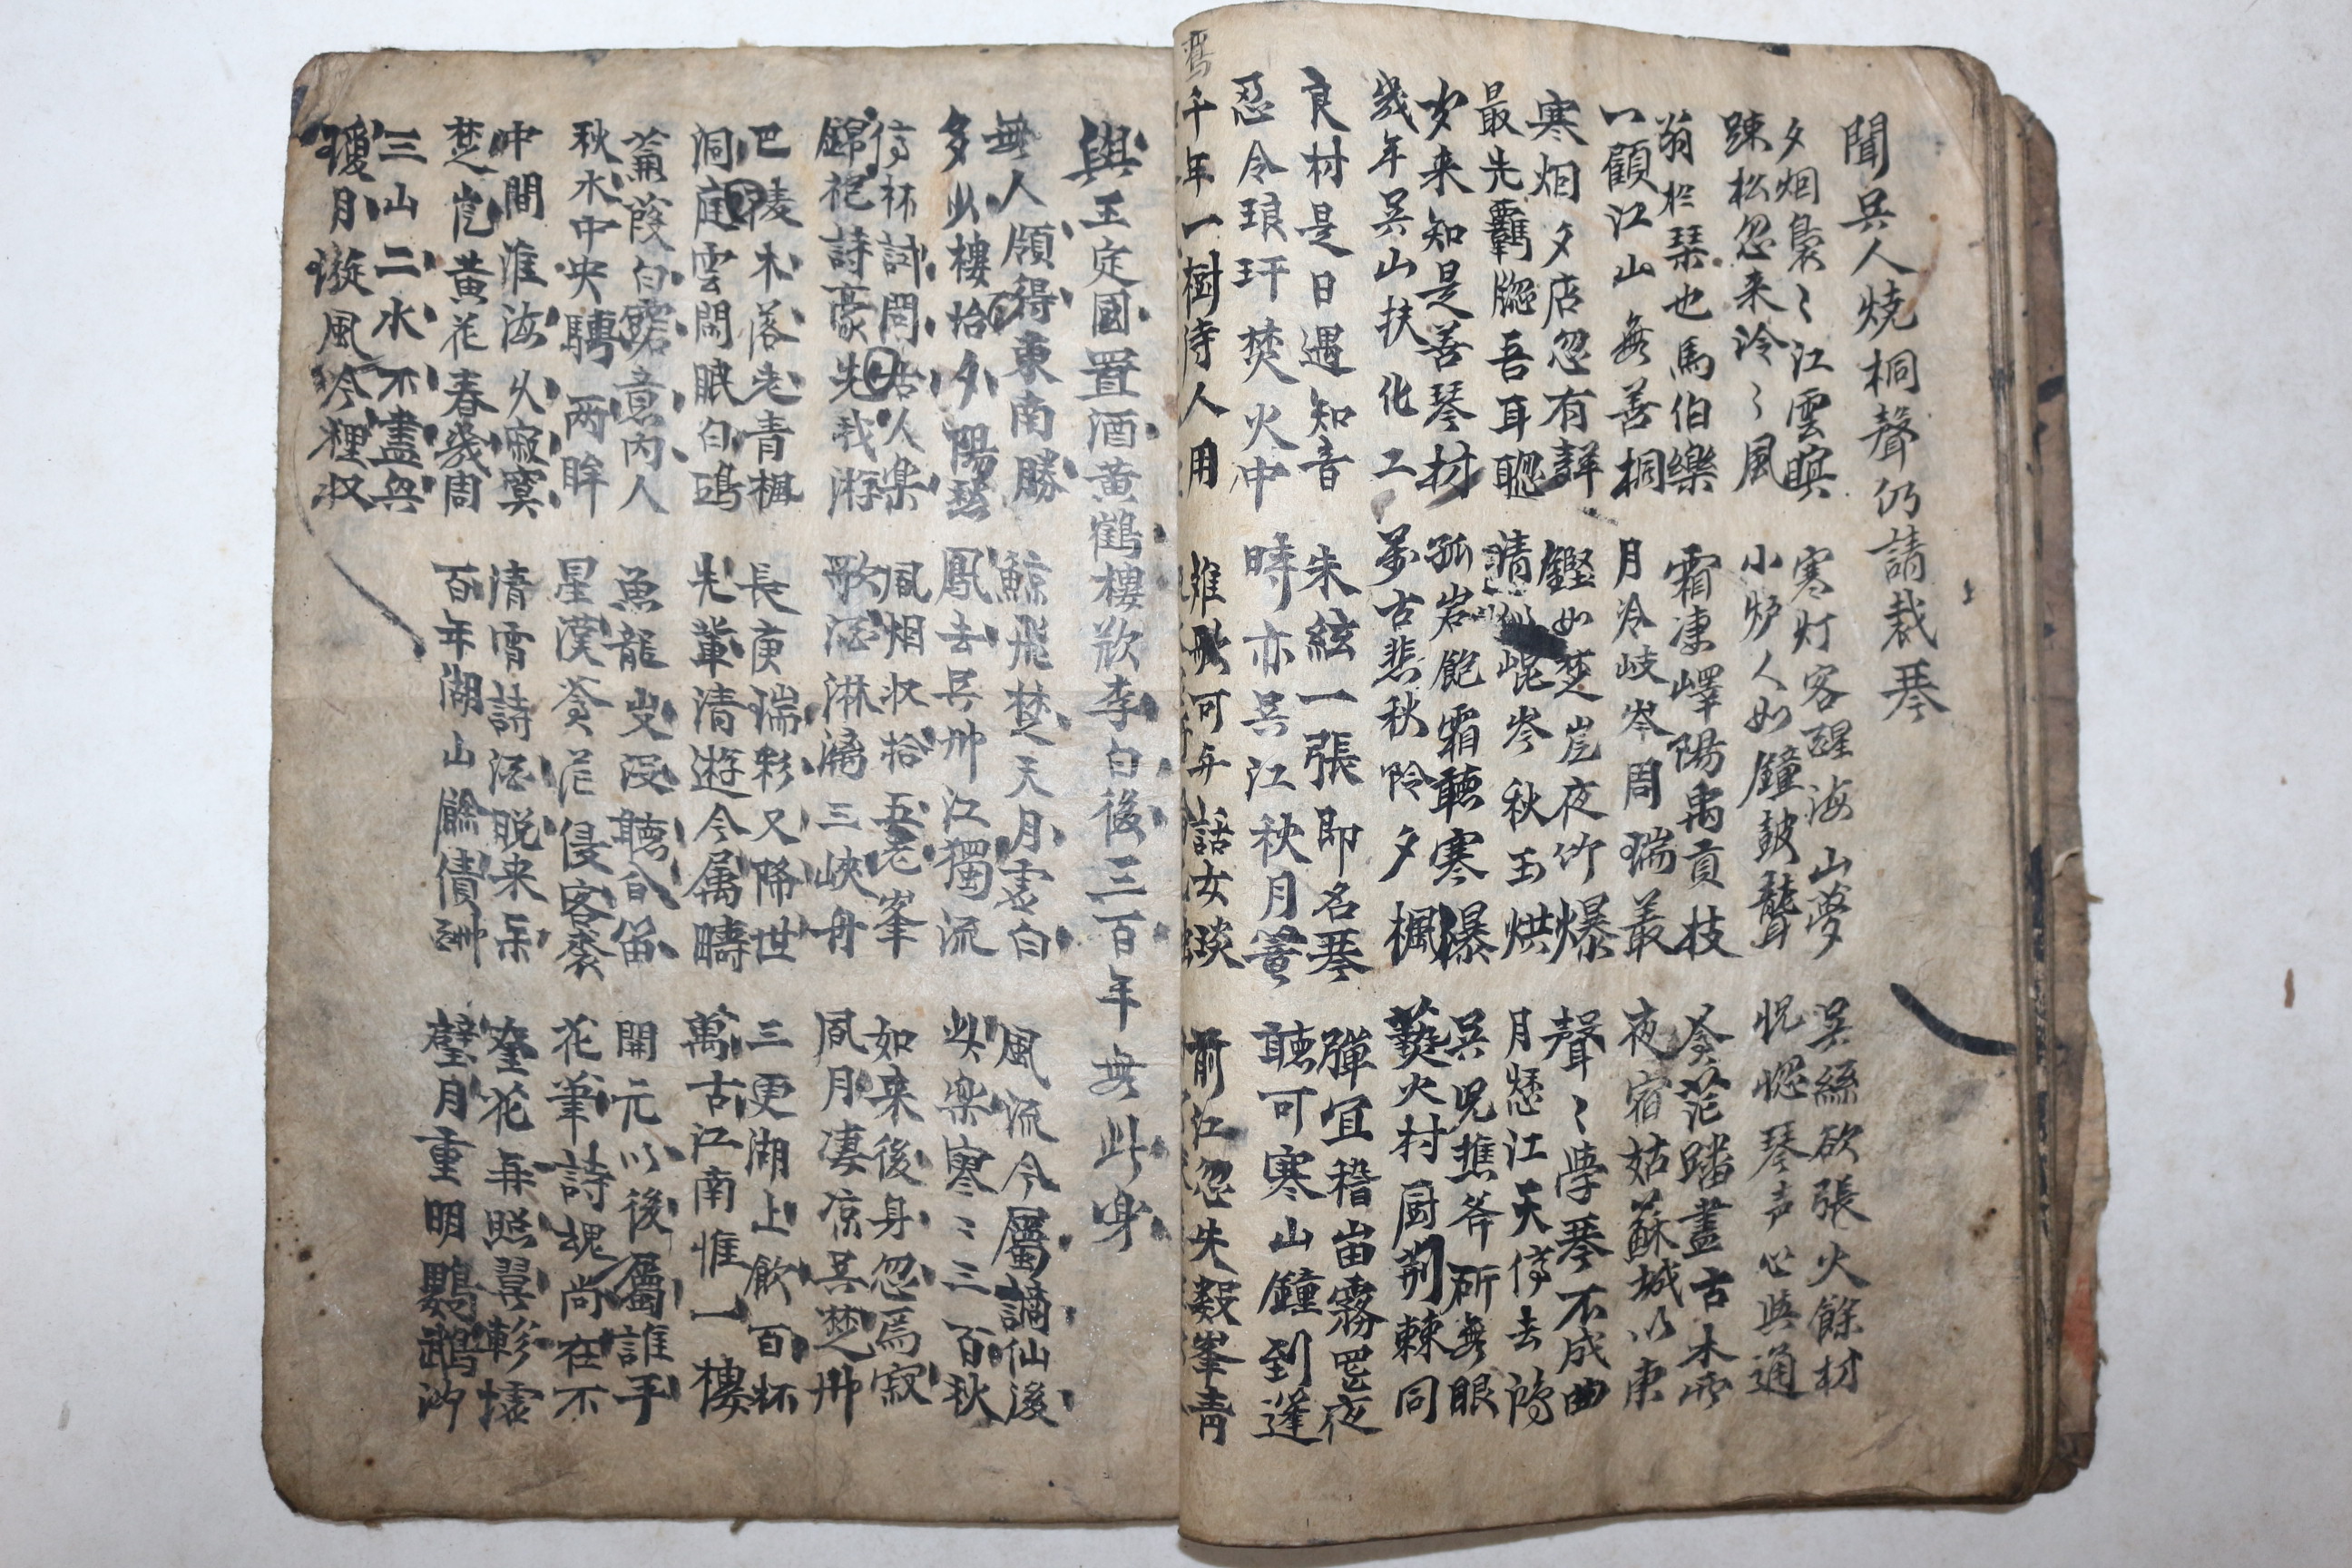 聞吳人燒桐聲仍請裁琴
夕烟裊〻江雲暝 寒灯客醒海山夢 吳絲欲張火餘材
踈松忽来泠〻風 小炉人如鐘鼓聾 怳惚琴声心與通
翁於琴也馬伯樂 霜凄嶧陽禹貢枝 蒼茫蹯盡古木
一顧江山無善桐 月冷岐岑周瑞叢 夜宿姑蘇城以東
寒烟夕店忽有 鏗如楚岸夜竹爆 聲〻學琴不成曲
最先覊牕吾耳聦 清崐岑秋玉烘 月愁江天停去鴻
少来知是善琴材 孤岩飽霜聽寒瀑 吳兒樵斧斫無眼
幾年吳山扶化工 萬古悲秋吟夕楓 爨火村厨荊棘同
良材是日遇知音 朱絃一張即名琴 彈宜稽岫霧罷夜
忍令琅玕焚火中 時亦吳江秋月 聽可寒山鐘到蓬
千年一樹待人用 可 話女 前江忽失數峯青
與王定國置酒黃鶴樓歎李白後三百年無此身
無人領得東南勝 鯨飛楚天月虛白 風流今屬謫仙後
多少樓坮夕陽愁 鳳去吳洲江獨流 此樂寥〻三百秋
停杯試問古人樂 風烟收拾五老峯 如来後身忽焉寂
錦袍詩豪先我游 歌酒淋漓三峽舟 風月凄凉吳楚洲
巴陵木落老青楓 長庚瑞彩又降世 三更湖上飮百杯
洞庭雲閑眠白鷗 先輩清遊今屬疇 萬古江南惟一樓
蒹葭白露意內人 魚龍叟沒聽白笛 開元以後屬誰手
秋水中央騁兩眸 星漢蒼茫侵客裘 花筆詩魂尚在不
中間淮海久寂寞 清宵詩酒脫来 花再照 轸懷
楚岸黃花春幾周 百年湖山餘債酬 璧月重明鸚鵡洲
三山二水不盡興
瓊月漩風吟裡収